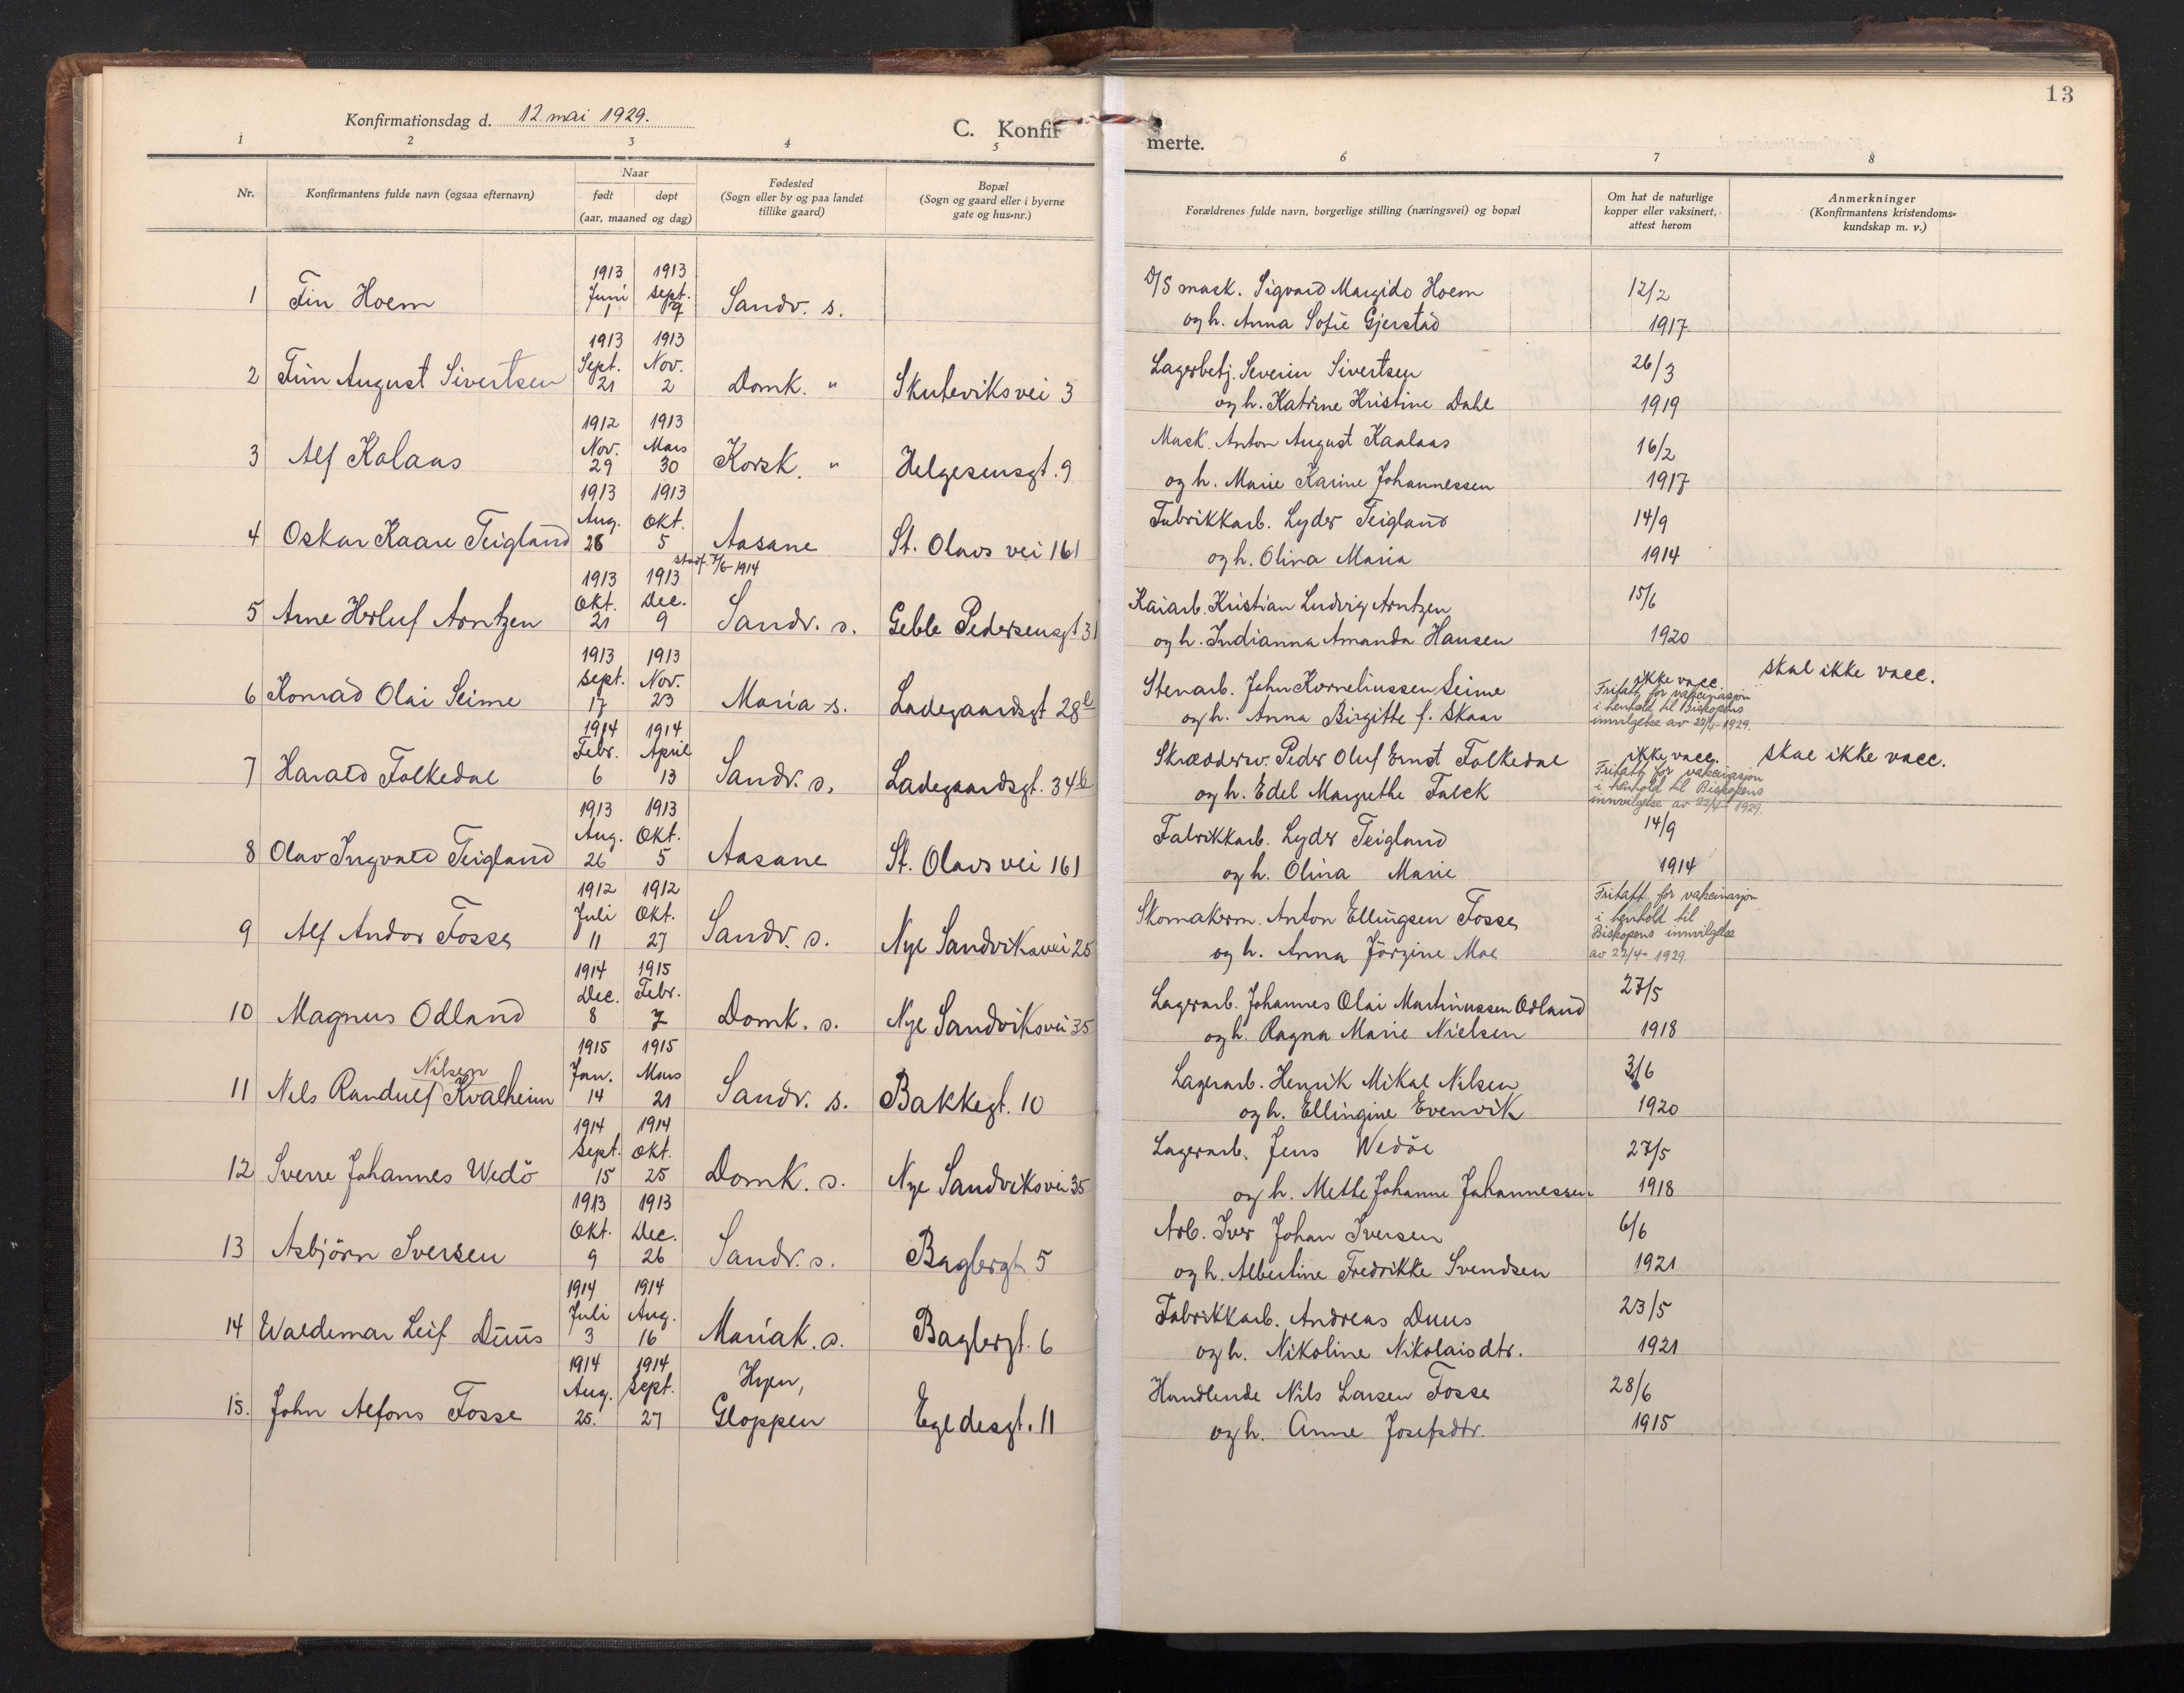 Konfirmationsdag d. 12. mai 1929.
C. Konfirmerte.
13
1 2 3 4 5 6 7 8
Nr.
Konfirmantens fulde navn (ogsaa efternavn)
Naar
født døpt
(aar, maaned og dag)
Fødested
(Sogn eller by og paa landet
tillike gaard)
Bopæl
(Sogn og gaard eller i byerne
gate og hus-nr.)
Forældrenes fulde navn, borgerlige stilling (næringsvei) og bopæl
Om hat de naturlige
kopper eller vaksinert,
attest herom
Anmerkninger
(Konfirmantens kristendoms-
kundskap m. v.)
1913 1913
Juni Sept.
1 Fin Hoem 1 Sandv. s.
D/S mask. Sigvard Margido Hoem 12/2
og h. Anna Sofie Gjerstad 1917
1913 1913
Sept. Nov.
2 Finn August Sivertsen 21 2 Domk. " Skuteviksvei 3
Lagerbetj. Severin Sivertsen 26/3
og h. Katrine Kristine Dahl 1919
1912 1913
Nov. Mars
3 Alf Kalaas 29 30 Korsk. " Helgesensgt. 9
Mask. Anton August Kaalaas 16/2
og h. Marie Karine Johannessen 1917
1913 1913
Aug. Okt.
4 Oskar Kaare Teigland 26 5 Aasane St. Olavs vei 161
Fabrikkarb. Lyder Teigland 14/9
og h. Olina Maria 1914
stadf. 7/6-1914
1913 1913
Okt. Dec.
5 Arne Herluf Arntzen 21 9 Sandv. s. Geble Pedersensgt 31
Kaiarb. Kristian Ludvig Arntzen 15/6
og h. Indianna Amanda Hansen 1920
1913 1913
Sept. Nov.
6 Konrad Olai Seime 17 23 Maria s. Ladegaardsgt 28b
Stenarb. John Korneliussen Seime ikke vacc. skal ikke vacc.
og h. Anna Birgitte f. Skaar
Fritatt for vakcinasjon
i henhold til Biskopens
innvilgelse av 22/4-1929.
1914 1914
Febr. April
7 Harald Folkedal 6 13 Sandv. s. Ladegaardsgt. 34b
Skræddersv. Peder Oluf Ernst Folkedal ikke vacc. skal ikke vacc.
og h. Edel Margrethe Falck
Fritatt for vakcinasjon
i henhold til Biskopens
innvilgelse av 22/4-1929.
1913 1913
Aug. Okt.
8 Olav Ingvald Teigland 26 5 Aasane St. Olavs vei 161
Fabrikkarb. Lyder Teigland 14/9
og h. Olina Marie 1914
1912 1912
Juli Okt.
9 Alf Andor Fosse 11 27 Sandv. s. Nye Sandviksvei 25
Skomakerm. Anton Ellingsen Fosse
og h. Anna Jörgine Moe
Fritatt for vakcinasjon
i henhold til
Biskopens innvilgelse
av 22/4-1929
1914 1915
Dec. Febr.
10 Magnus Odland 8 7 Domk. s. Nye Sandviksvei 35
Lagerarb. Johannes Olai Martinussen Odland 27/5
og h. Ragna Marie Nielsen 1918
1915 1915
Nilsen Jan. Mars
11 Nils Randulf Kvalheim 14 21 Sandv. s. Bakkegt. 10
Lagerarb. Henrik Mikal Nilsen 3/6
og h. Ellingine Evenvik 1920
1914 1914
Sept. Okt.
12 Sverre Johannes Wedö 15 25 Domk. s. Nye Sandviksvei 35
Lagerarb. Jens Wedöe 27/5
og h. Mette Johanne Johannessen 1918
1913 1913
Okt. Dec.
13 Asbjörn Iversen 9 26 Sandv. s. Baglergt. 5
Arb. Iver Johan Iversen 6/6
og h. Albertine Fredrikke Svendsen 1921
1914 1914
Juli Aug.
14 Waldemar Leif Duus 3 16 Mariak. s. Baglergt. 6
Fabrikkarb. Andreas Duus 23/5
og h. Nikoline Nikolaisdtr. 1921
1914 1914
Aug. Sept. Hyen,
15. John Alfons Fosse 25. 27 Gloppen Egedesgt. 11
Handlende Nils Larsen Fosse 28/6
og h. Anne Josefsdtr. 1915